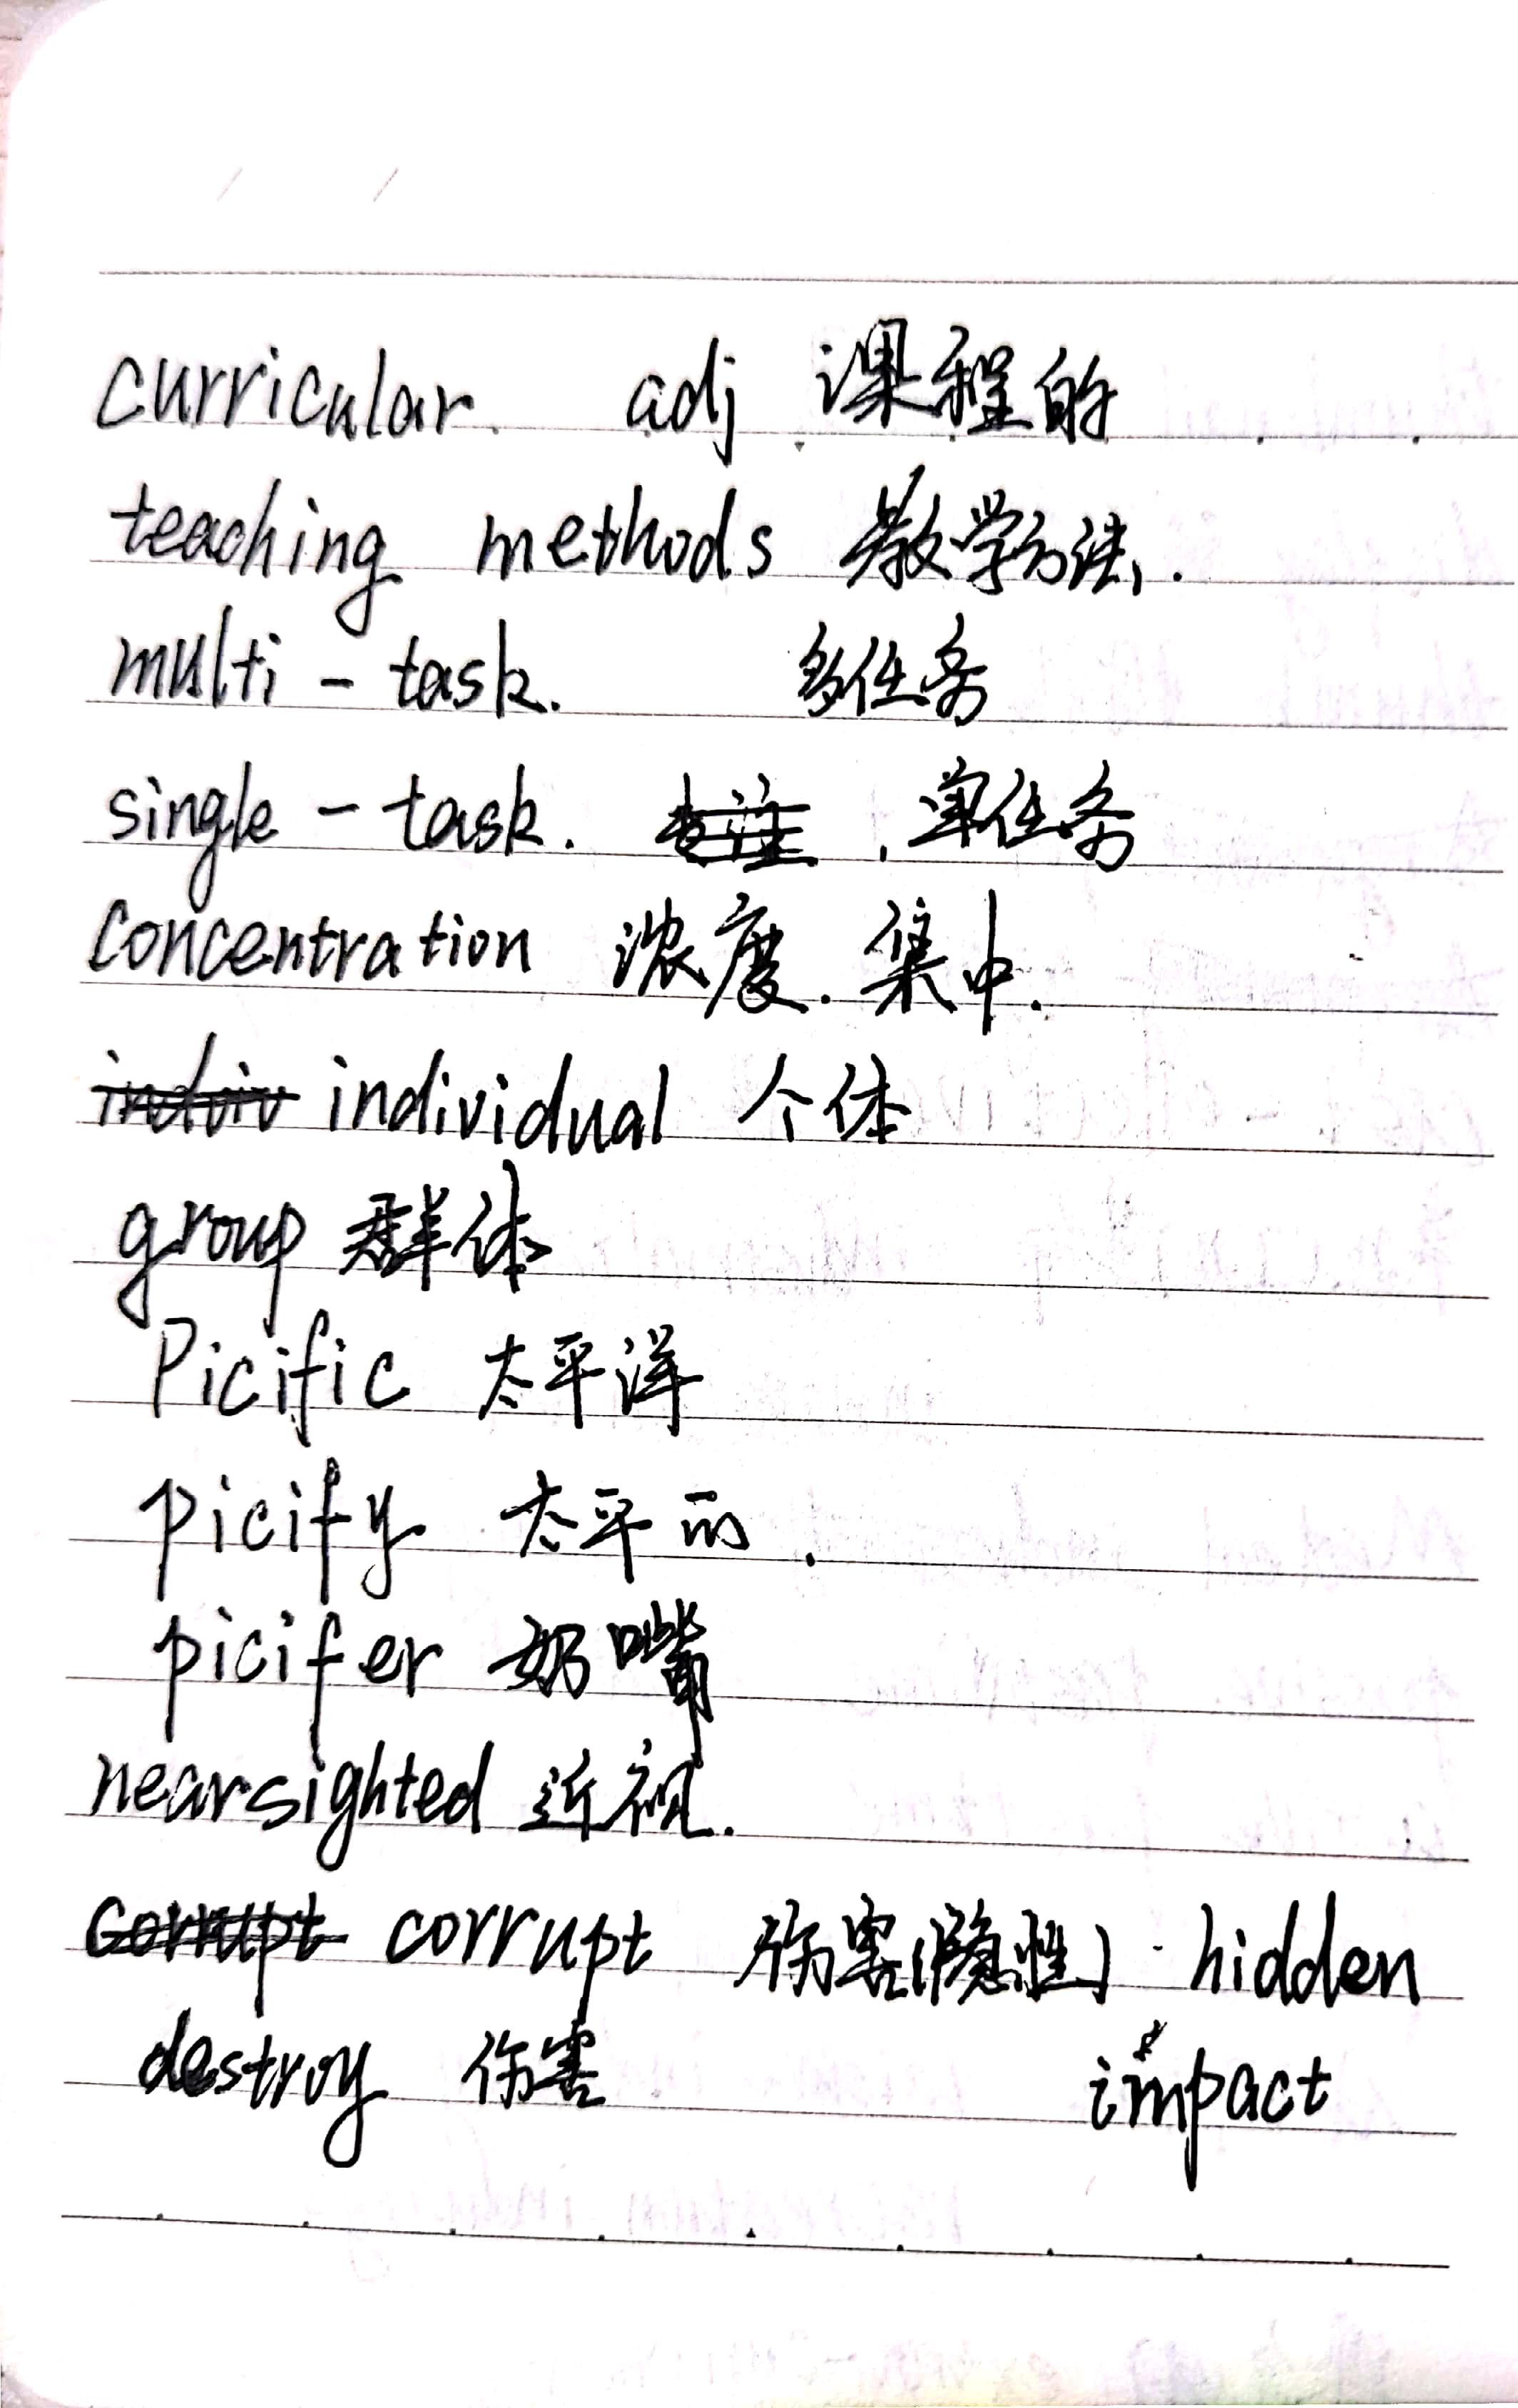 curricular adj 课程的
teaching methods 教学方法.
multi-task. 多任务
single-task. 单任务
Concentration 浓度. 集中.
individual 个体
group 群体
Picific 太平洋
picify 太平的.
picifer 奶嘴
nearsighted 近视.
corrupt 伤害(隐性) hidden
destroy 伤害 impact